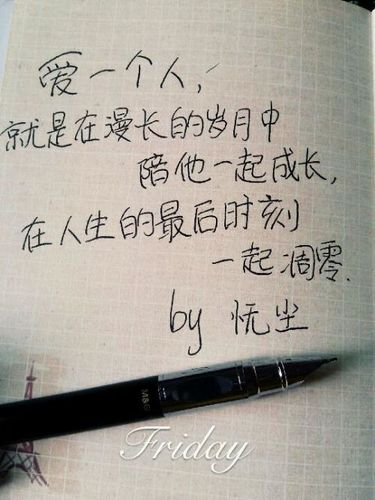 爱一个人，
就是在漫长的岁月中
陪他一起成长，
在人生的最后时刻
一起凋零.
by 恍尘
M&G
Friday